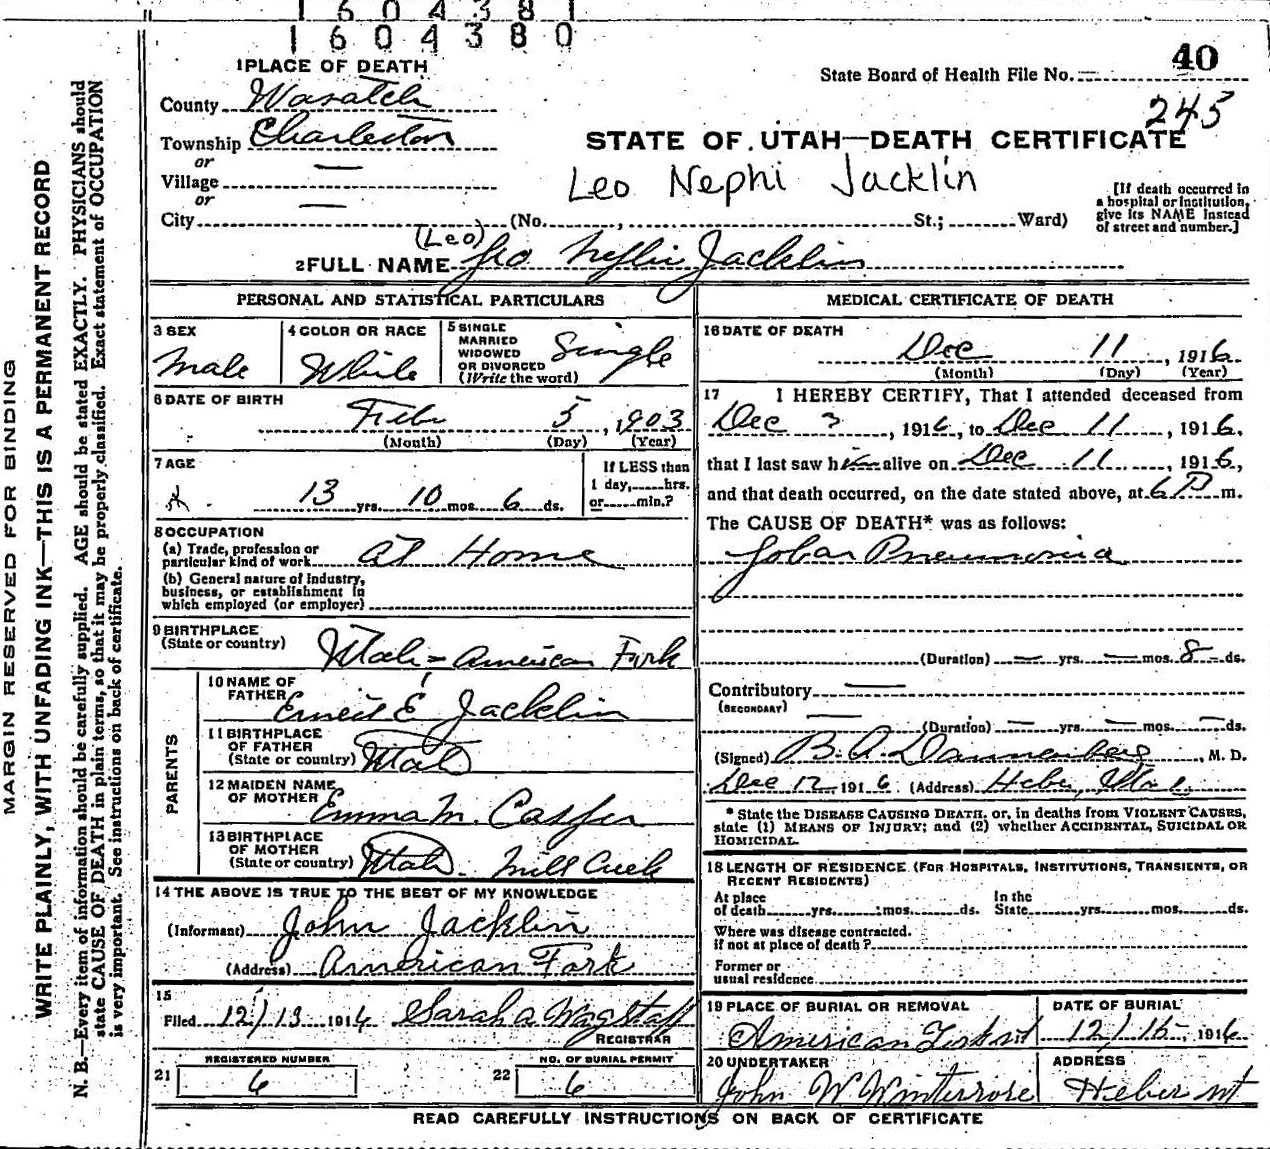 1604381
1604380
MARGIN RESERVED FOR BINDING
WRITE PLAINLY, WITH UNFADING INK—THIS IS A PERMANENT RECORD
N. B.—Every item of information should be carefully supplied. AGE should be stated EXACTLY. PHYSICIANS should
state CAUSE OF DEATH in plain terms, so that it may be properly classified. Exact statement of OCCUPATION
is very important. See instructions on back of certificate.
1 PLACE OF DEATH
County Wasatch
Township Charleston
or
Village —
or
City — (No. , St.; Ward)
State Board of Health File No. — 40
245
STATE OF UTAH—DEATH CERTIFICATE
Leo Nephi Jacklin
[If death occurred in
a hospital or institution,
give its NAME instead
of street and number.]
(Leo)
2 FULL NAME Leo Nephi Jacklin
PERSONAL AND STATISTICAL PARTICULARS
3 SEX
Male
4 COLOR OR RACE
White
5 SINGLE
MARRIED
WIDOWED
OR DIVORCED
(Write the word)
Single
6 DATE OF BIRTH
Feb 5, 1903
(Month) (Day) (Year)
7 AGE
13 yrs. 10 mos. 6 ds.
If LESS than
1 day, hrs.
or min.?
8 OCCUPATION
(a) Trade, profession or
particular kind of work At Home
(b) General nature of industry,
business, or establishment in
which employed (or employer)
9 BIRTHPLACE
(State or country) Utah - American Fork
PARENTS
10 NAME OF
FATHER Ernest E Jacklin
11 BIRTHPLACE
OF FATHER
(State or country) Utah
12 MAIDEN NAME
OF MOTHER Emma M. Casper
13 BIRTHPLACE
OF MOTHER
(State or country) Utah - Mill Creek
14 THE ABOVE IS TRUE TO THE BEST OF MY KNOWLEDGE
(Informant) John Jacklin
(Address) American Fork
15
Filed 12/13 1916 Sarah A Wagstaff
REGISTRAR
REGISTERED NUMBER
21 6
NO. OF BURIAL PERMIT
22 6
MEDICAL CERTIFICATE OF DEATH
16 DATE OF DEATH
Dec 11, 1916
(Month) (Day) (Year)
17 I HEREBY CERTIFY, That I attended deceased from
Dec 3, 1916, to Dec 11, 1916,
that I last saw him alive on Dec 11, 1916,
and that death occurred, on the date stated above, at 6 P m.
The CAUSE OF DEATH* was as follows:
Lobar Pneumonia
(Duration) — yrs. — mos. 8 ds.
Contributory —
(SECONDARY) —
(Duration) — yrs. — mos. — ds.
(Signed) B. A. Dannenberg, M. D.
Dec 12 1916 (Address) Heber, Utah
* State the DISEASE CAUSING DEATH, or, in deaths from VIOLENT CAUSES,
state (1) MEANS OF INJURY; and (2) whether ACCIDENTAL, SUICIDAL OR
HOMICIDAL.
18 LENGTH OF RESIDENCE (FOR HOSPITALS, INSTITUTIONS, TRANSIENTS, OR
RECENT RESIDENTS)
At place
of death yrs. mos. ds.
In the
State yrs. mos. ds.
Where was disease contracted.
if not at place of death?
Former or
usual residence
19 PLACE OF BURIAL OR REMOVAL
American Fork ut
DATE OF BURIAL
12/15, 1916
20 UNDERTAKER
John W Winterrose
ADDRESS
Heber ut
READ CAREFULLY INSTRUCTIONS ON BACK OF CERTIFICATE